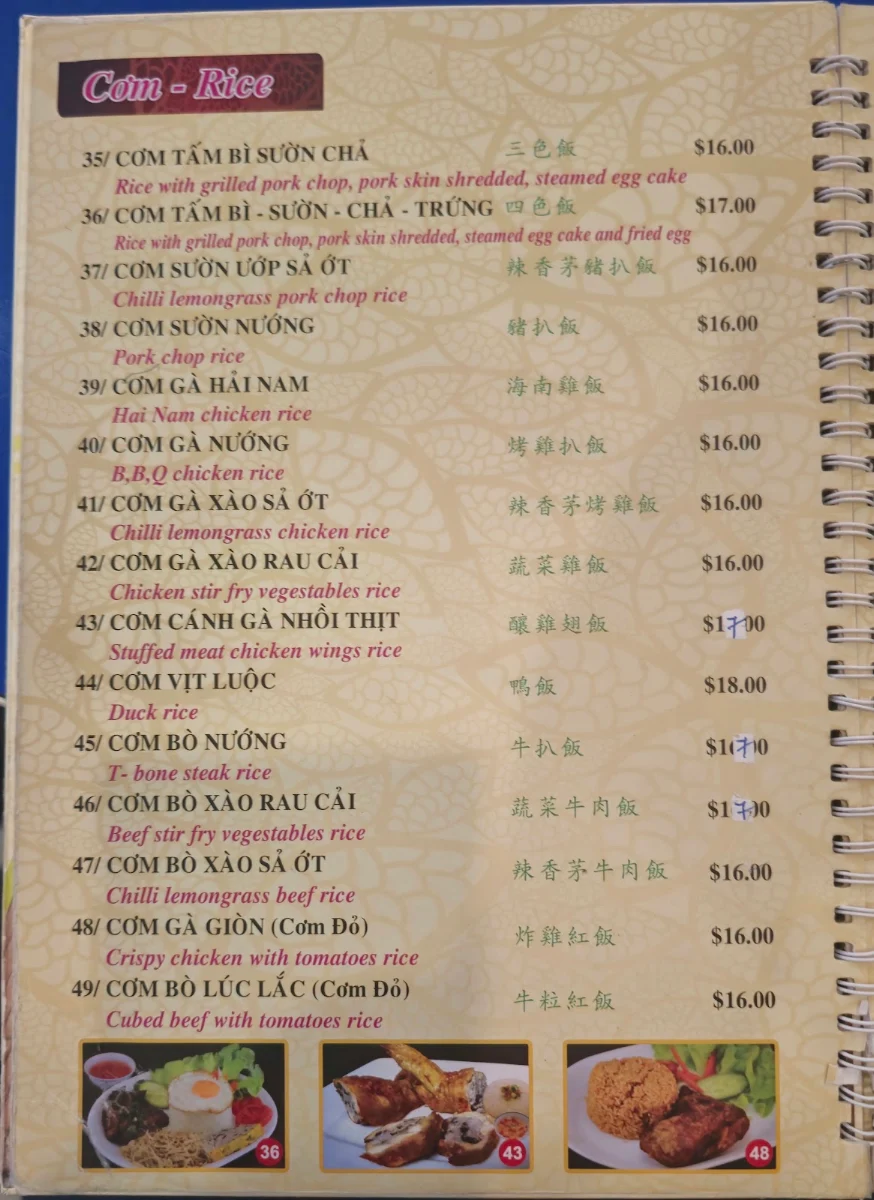 Cơm - Rice
35/ CƠM TẤM BÌ SƯỜN CHẢ 三色飯 $16.00
Rice with grilled pork chop, pork skin shredded, steamed egg cake
36/ CƠM TẤM BÌ - SƯỜN - CHẢ - TRỨNG 四色飯 $17.00
Rice with grilled pork chop, pork skin shredded, steamed egg cake and fried egg
37/ CƠM SƯỜN ƯỚP SẢ ỚT 辣香茅豬扒飯 $16.00
Chilli lemongrass pork chop rice
38/ CƠM SƯỜN NƯỚNG 豬扒飯 $16.00
Pork chop rice
39/ CƠM GÀ HẢI NAM 海南雞飯 $16.00
Hai Nam chicken rice
40/ CƠM GÀ NƯỚNG 烤雞扒飯 $16.00
B,B,Q chicken rice
41/ CƠM GÀ XÀO SẢ ỚT 辣香茅烤雞飯 $16.00
Chilli lemongrass chicken rice
42/ CƠM GÀ XÀO RAU CẢI 蔬菜雞飯 $16.00
Chicken stir fry vegestables rice
43/ CƠM CÁNH GÀ NHỒI THỊT 釀雞翅飯 $17.00
Stuffed meat chicken wings rice
44/ CƠM VỊT LUỘC 鴨飯 $18.00
Duck rice
45/ CƠM BÒ NƯỚNG 牛扒飯
T- bone steak rice
46/ CƠM BÒ XÀO RAU CẢI 蔬菜牛肉飯 $17.00
Beef stir fry vegestables rice
47/ CƠM BÒ XÀO SẢ ỚT 辣香茅牛肉飯 $16.00
Chilli lemongrass beef rice
48/ CƠM GÀ GIÒN (Cơm Đỏ) 炸雞紅飯 $16.00
Crispy chicken with tomatoes rice
49/ CƠM BÒ LÚC LẮC (Cơm Đỏ) 牛粒紅飯 $16.00
Cubed beef with tomatoes rice
36 43 48